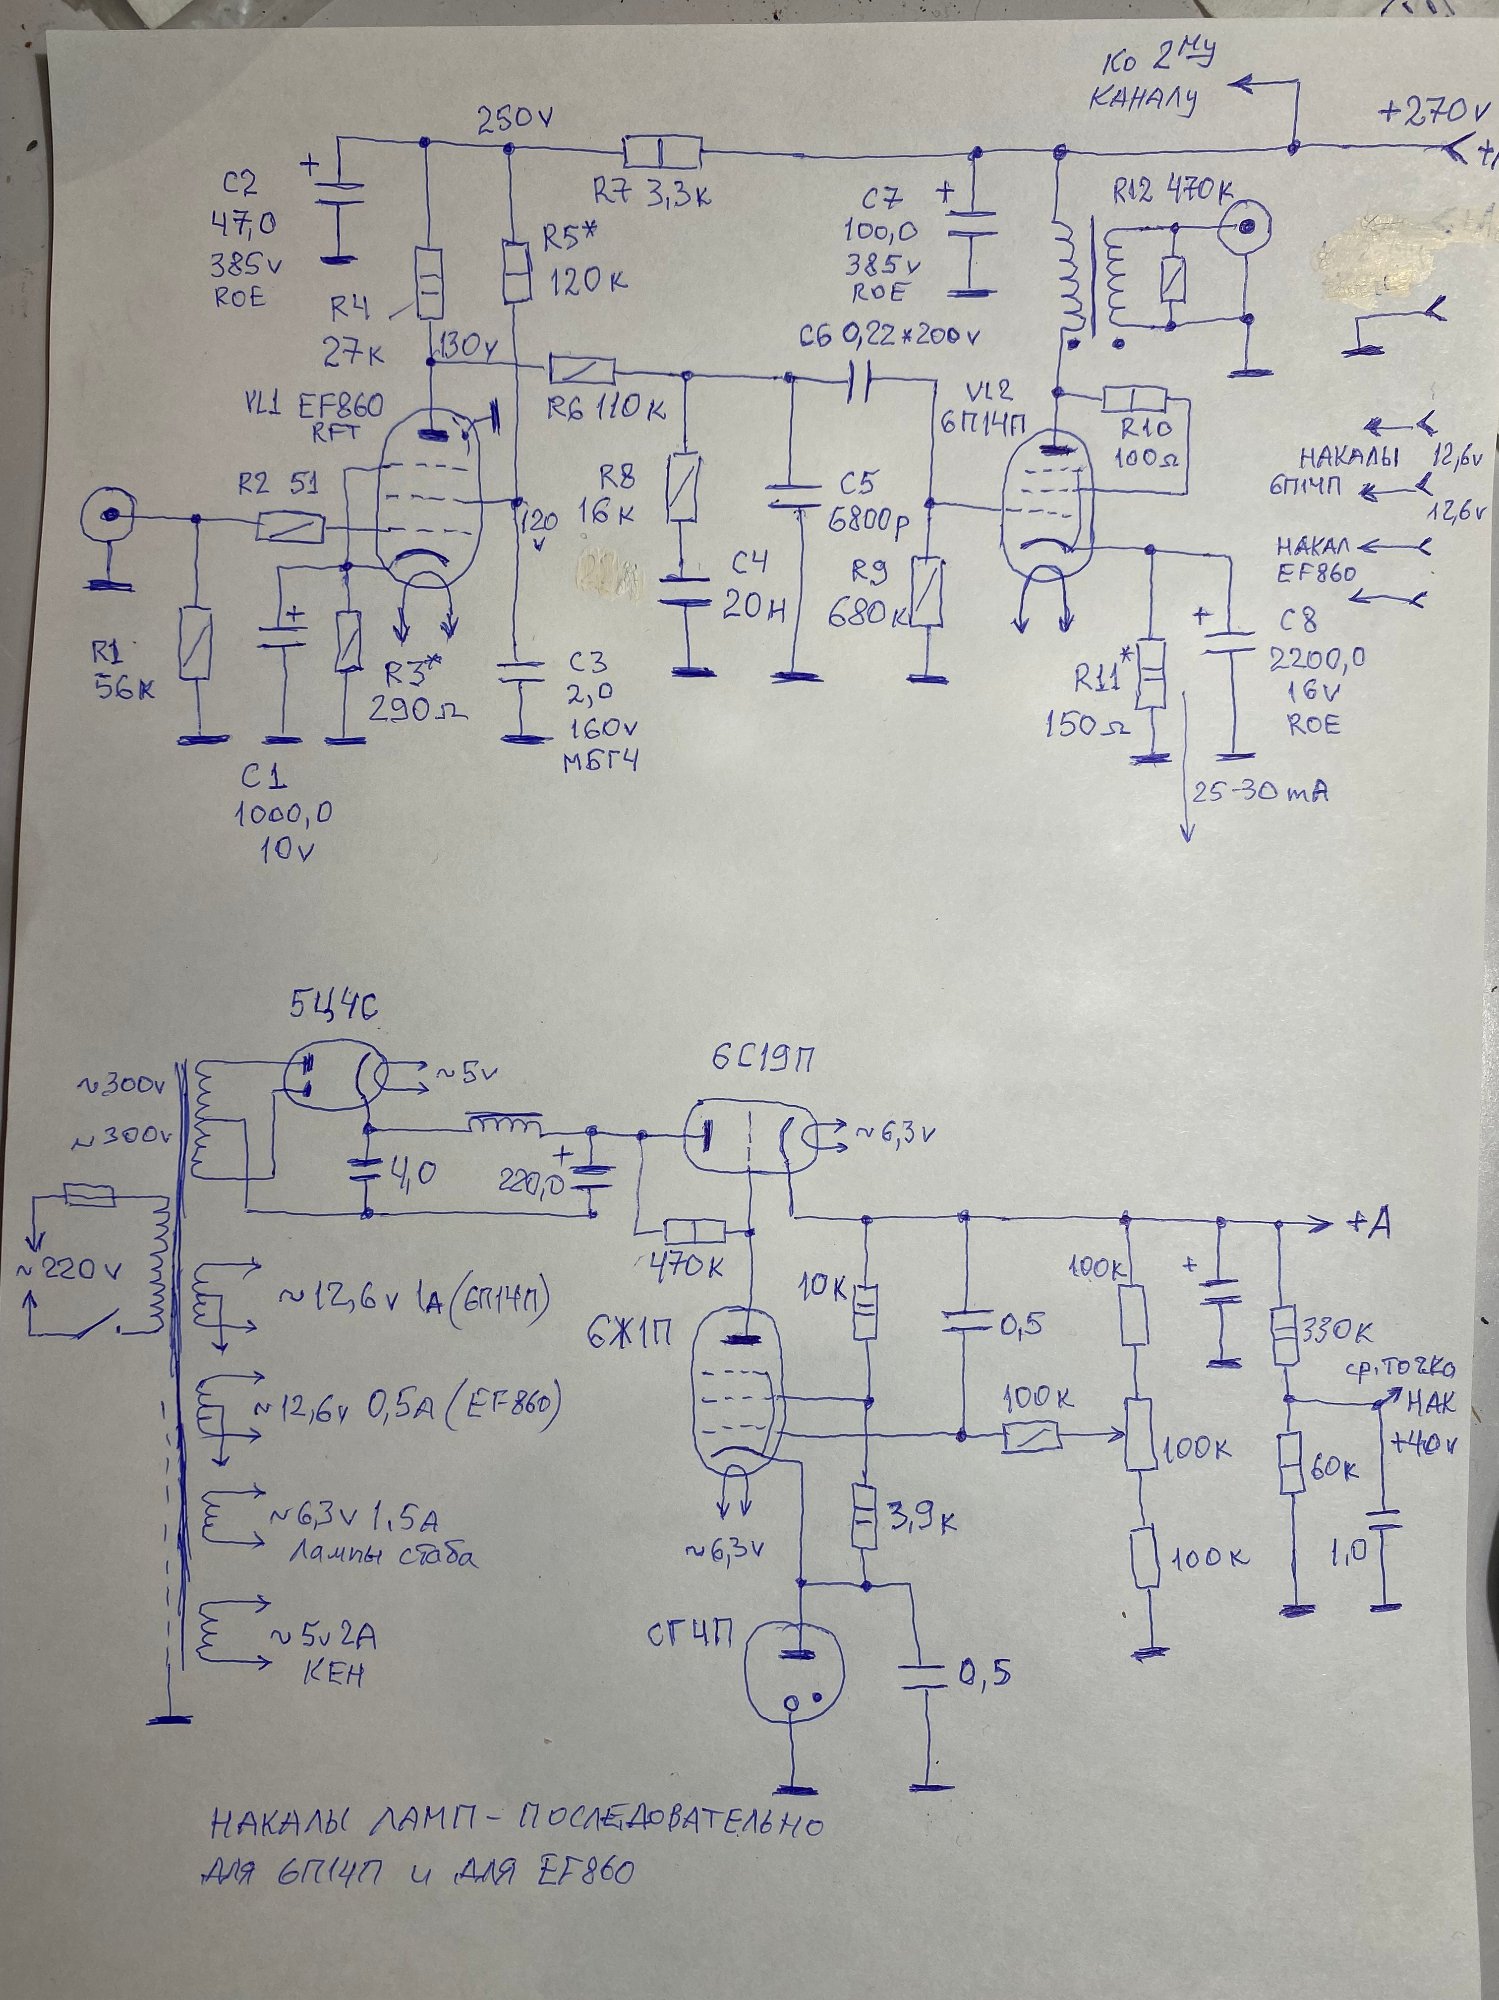 Ко 2му
КАНАЛУ
+270v
250v
+
C2
47,0
385v
ROE
R7 3,3к
C7
100,0
385v
ROE
+
R12 470к
R5*
120к
R4
27к
130v
C6 0,22*200v
VL1 EF860
RFT
R6 110к
VL2
6П14П
R10
100Ω
НАКАЛЫ
6П14П
12,6v
12,6v
R2 51
R8
16к
C5
6800р
120
v
НАКАЛ
EF860
C4
20Н
R9
680к
+
C8
2200,0
16v
ROE
R1
56к
+
R3*
290Ω
C3
2,0
160v
МБГЧ
R11*
150Ω
C1
1000,0
10v
25-30mA
5Ц4С
6С19П
~300v
~300v
~5v
~6,3v
4,0
+
220,0
+A
~220v
470к
~12,6v 1A (6П14П)
6Ж1П
10к
0,5
100к
+
330к
ср.точка
НАК
+40v
~12,6v 0,5A (EF860)
100к
100к
60к
~6,3v 1.5A
Лампы стаба
~6,3v
3,9к
100к
1,0
~5v 2A
КЕН
СГ4П
0,5
НАКАЛЫ ЛАМП - ПОСЛЕДОВАТЕЛЬНО
ДЛЯ 6П14П и ДЛЯ EF860